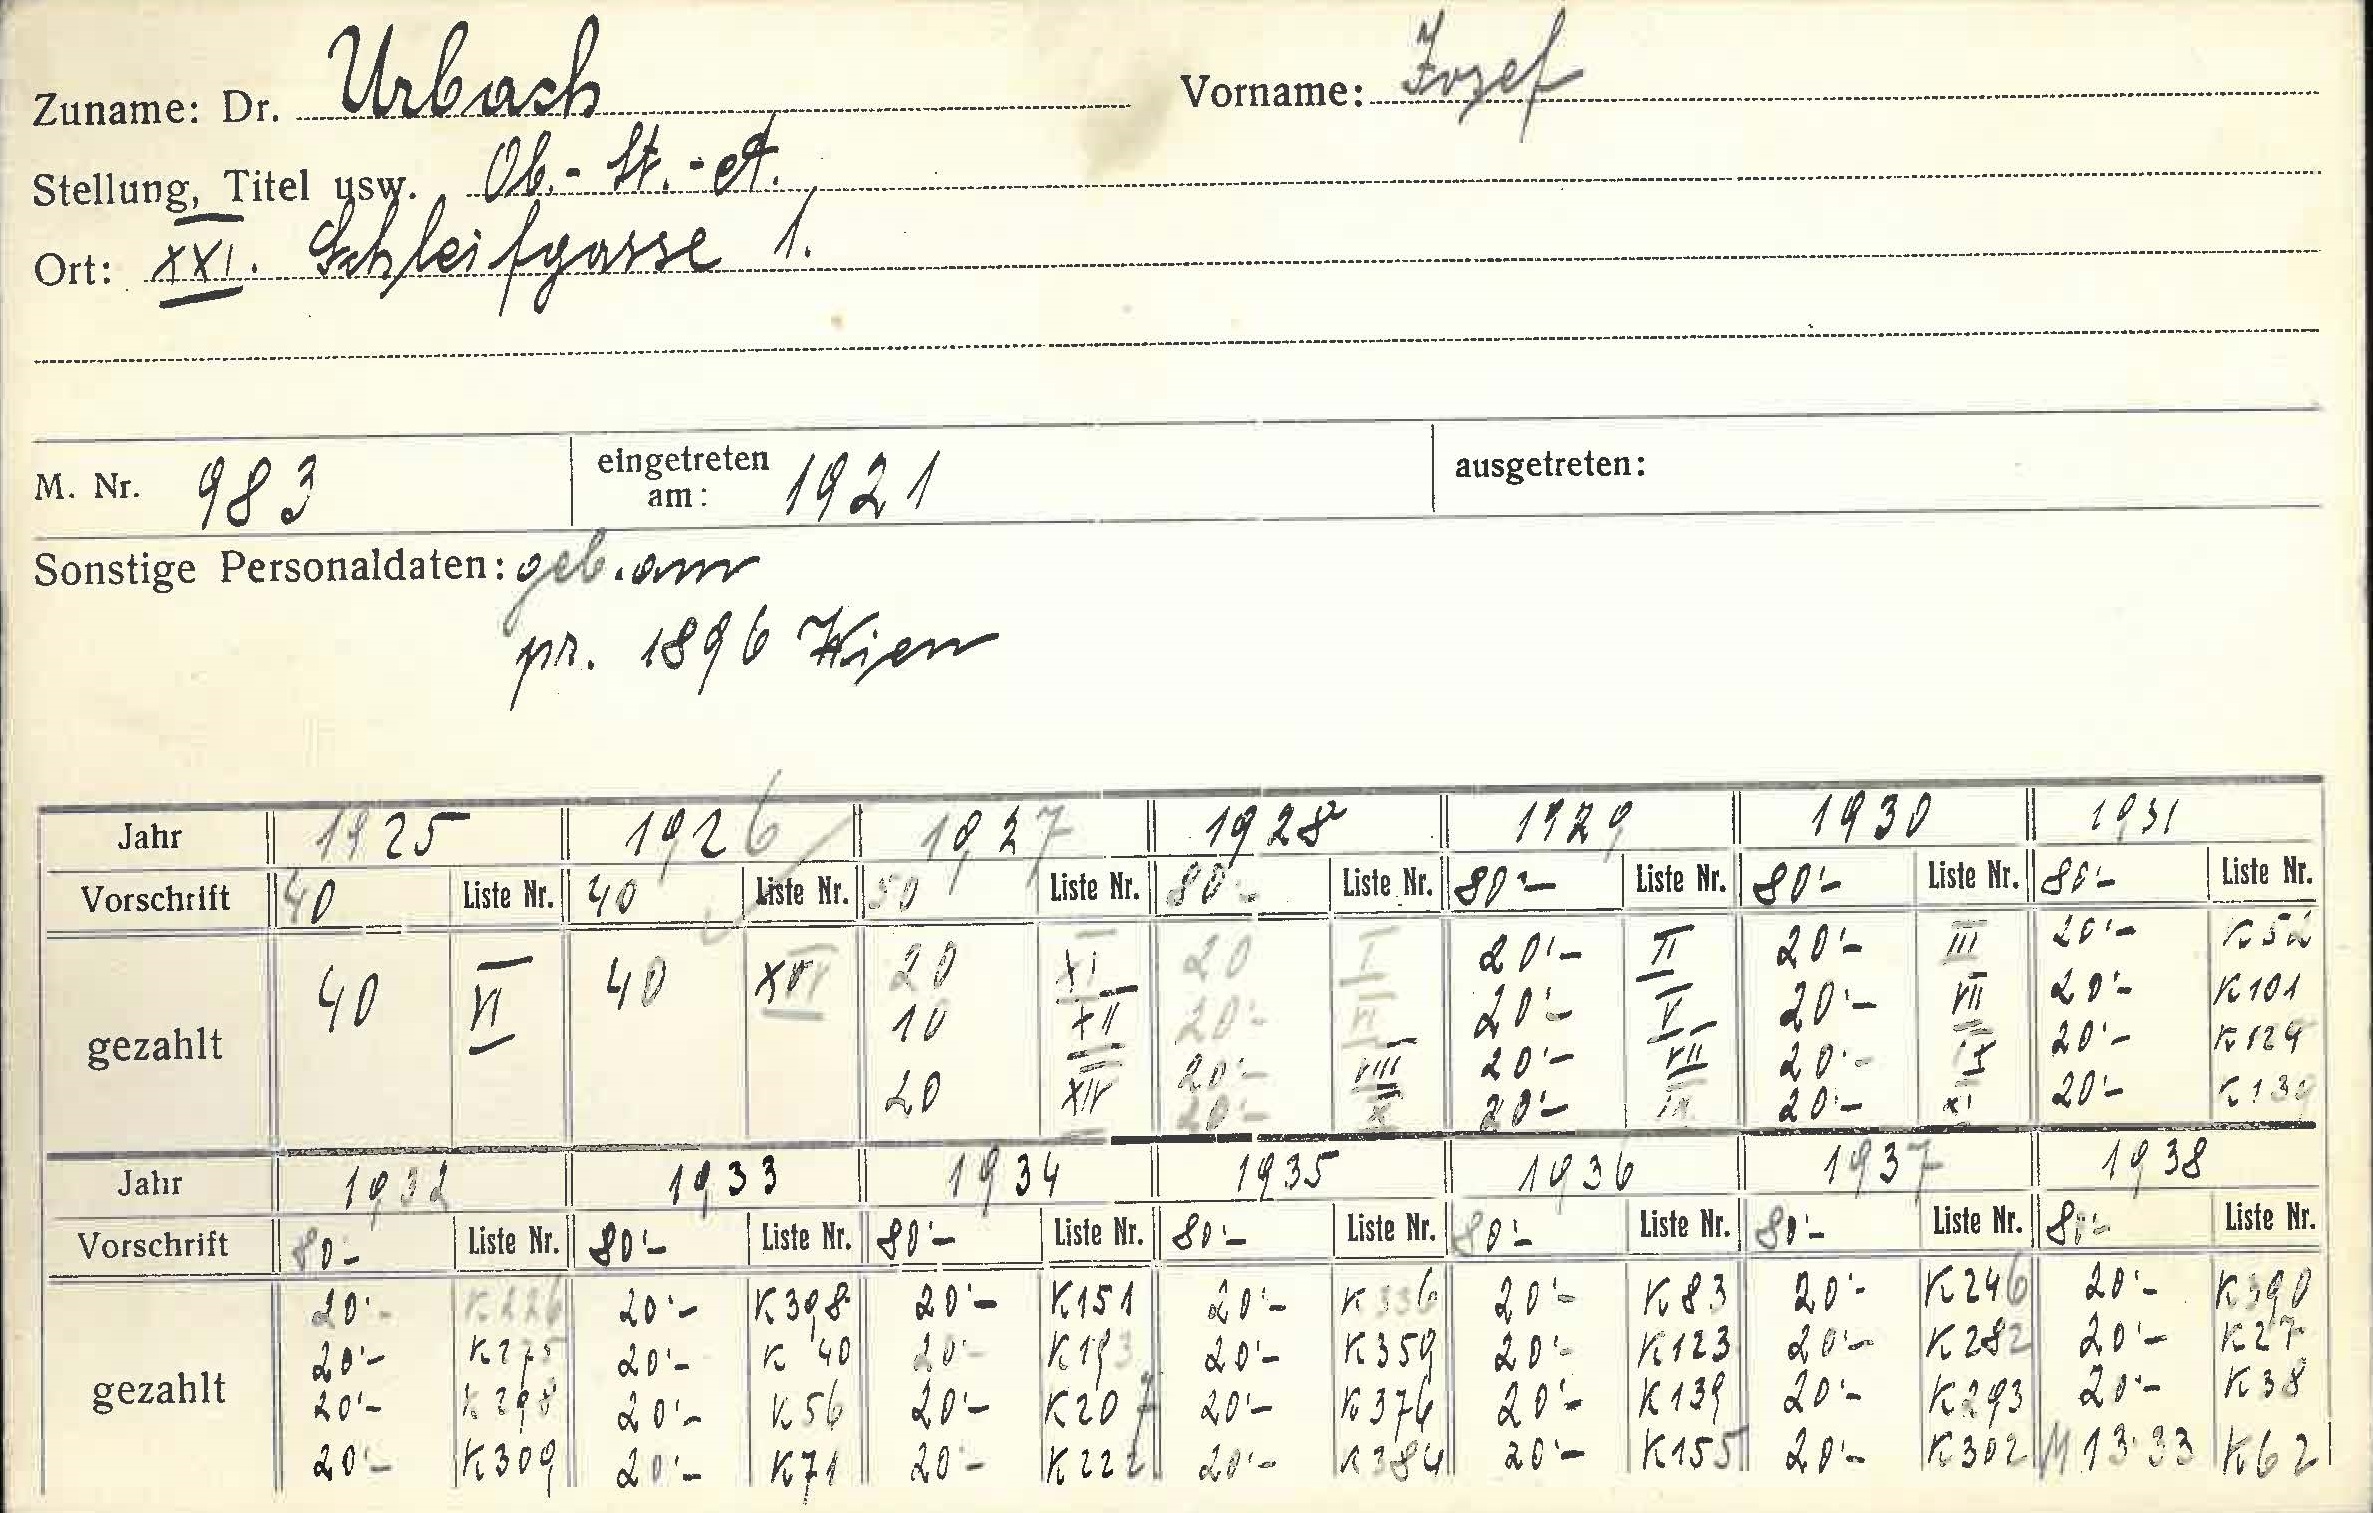 Zuname: Dr. Urbach Vorname: Josef
Stellung, Titel usw. Ob.-St.-A.
Ort: XXI. Schleifgasse 1.
M. Nr. 983 eingetreten am: 1921 ausgetreten:
Sonstige Personaldaten: geb. am
pr. 1896 Wien
Jahr 1925 1926 1927 1928 1929 1930 1931
Vorschrift 40 Liste Nr. 40 Liste Nr. 50 Liste Nr. 80'- Liste Nr. 80'- Liste Nr. 80'- Liste Nr. 80'- Liste Nr.
gezahlt 40 VI 40 20 XI 20 I 20'- II 20'- III 20'- K52
10 XII 20'- VI 20'- V 20'- VII 20'- K101
20'- VIII 20'- VII 20'- IX 20'- K124
20 XIV 20'- X 20'- IX 20'- XI 20'-
Jahr 1932 1933 1934 1935 1936 1937 1938
Vorschrift 80'- Liste Nr. 80'- Liste Nr. 80'- Liste Nr. 80'- Liste Nr. 80'- Liste Nr. 80'- Liste Nr. 80'- Liste Nr.
gezahlt 20'- K226 20'- K398 20'- K151 20'- K336 20'- K83 20'- K246 20'- K390
20'- K275 20'- K40 20'- K193 20'- K359 20'- K123 20'- K282 20'- K27
20'- K298 20'- K56 20'- K207 20'- K376 20'- K139 20'- K293 20'- K38
20'- K309 20'- K71 20'- K222 20'- K384 20'- K155 20'- K302 M 13'33 K62